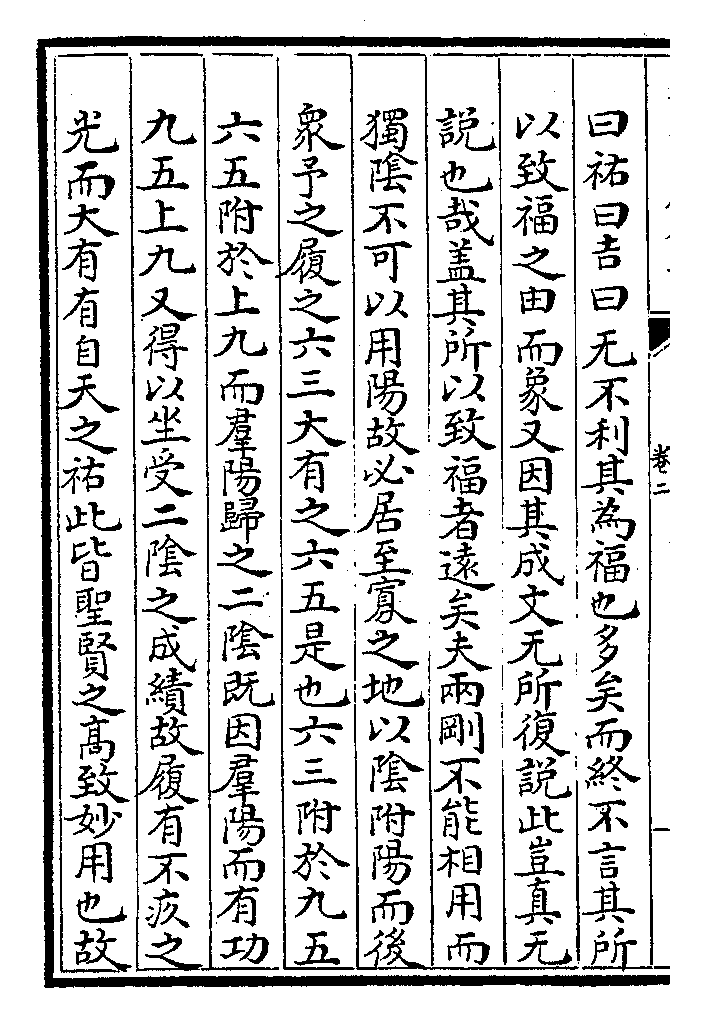 卷二
一
曰祐曰吉曰无不利其為福也多矣而終不言其所
以致福之由而象又因其成文无所復說此豈真无
說也哉盖其所以致福者遠矣夫兩剛不能相用而
獨陰不可以用陽故必居至寡之地以陰附陽而後
衆予之履之六三大有之六五是也六三附於九五
六五附於上九而羣陽歸之二陰既因羣陽而有功
九五上九又得以坐受二陰之成績故履有不疚之
光而大有有自天之祐此皆聖賢之高致妙用也故